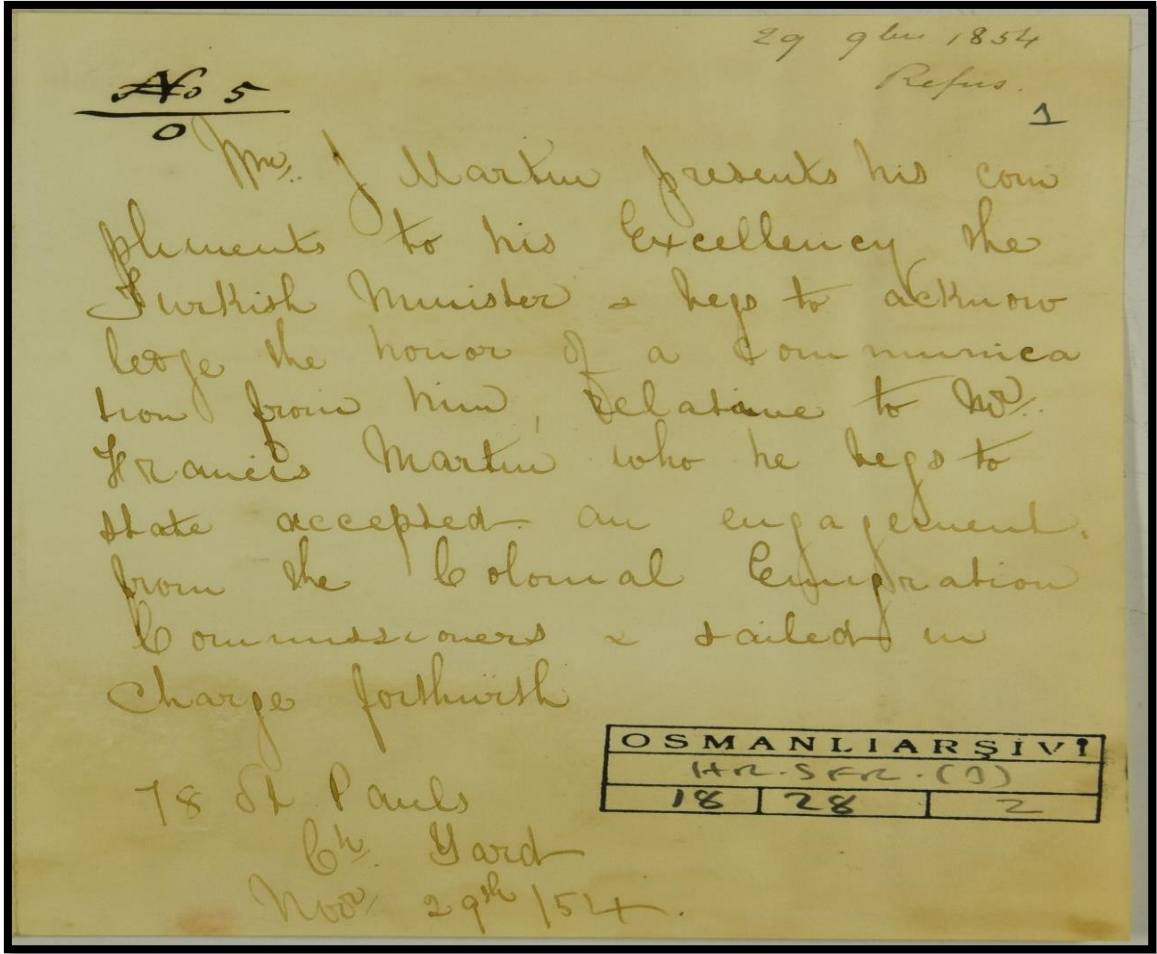 29 9bre 1854
Refus.
No 5
0
1
Wm. J Martin presents his com
pliments to his Excellency the
Turkish Minister & begs to acknow
ledge the honor of a communica
tion from him, relative to Mr.
Francis Martin who he begs to
state accepted an engagement.
from the Colonial Emigration
Commissioners & sailed in
Charge forthwith
78 St Pauls
Ch. Yard
Novr 29th /54.
OSMANLI ARŞİVİ
HR.SFR.(3)
18 28 2